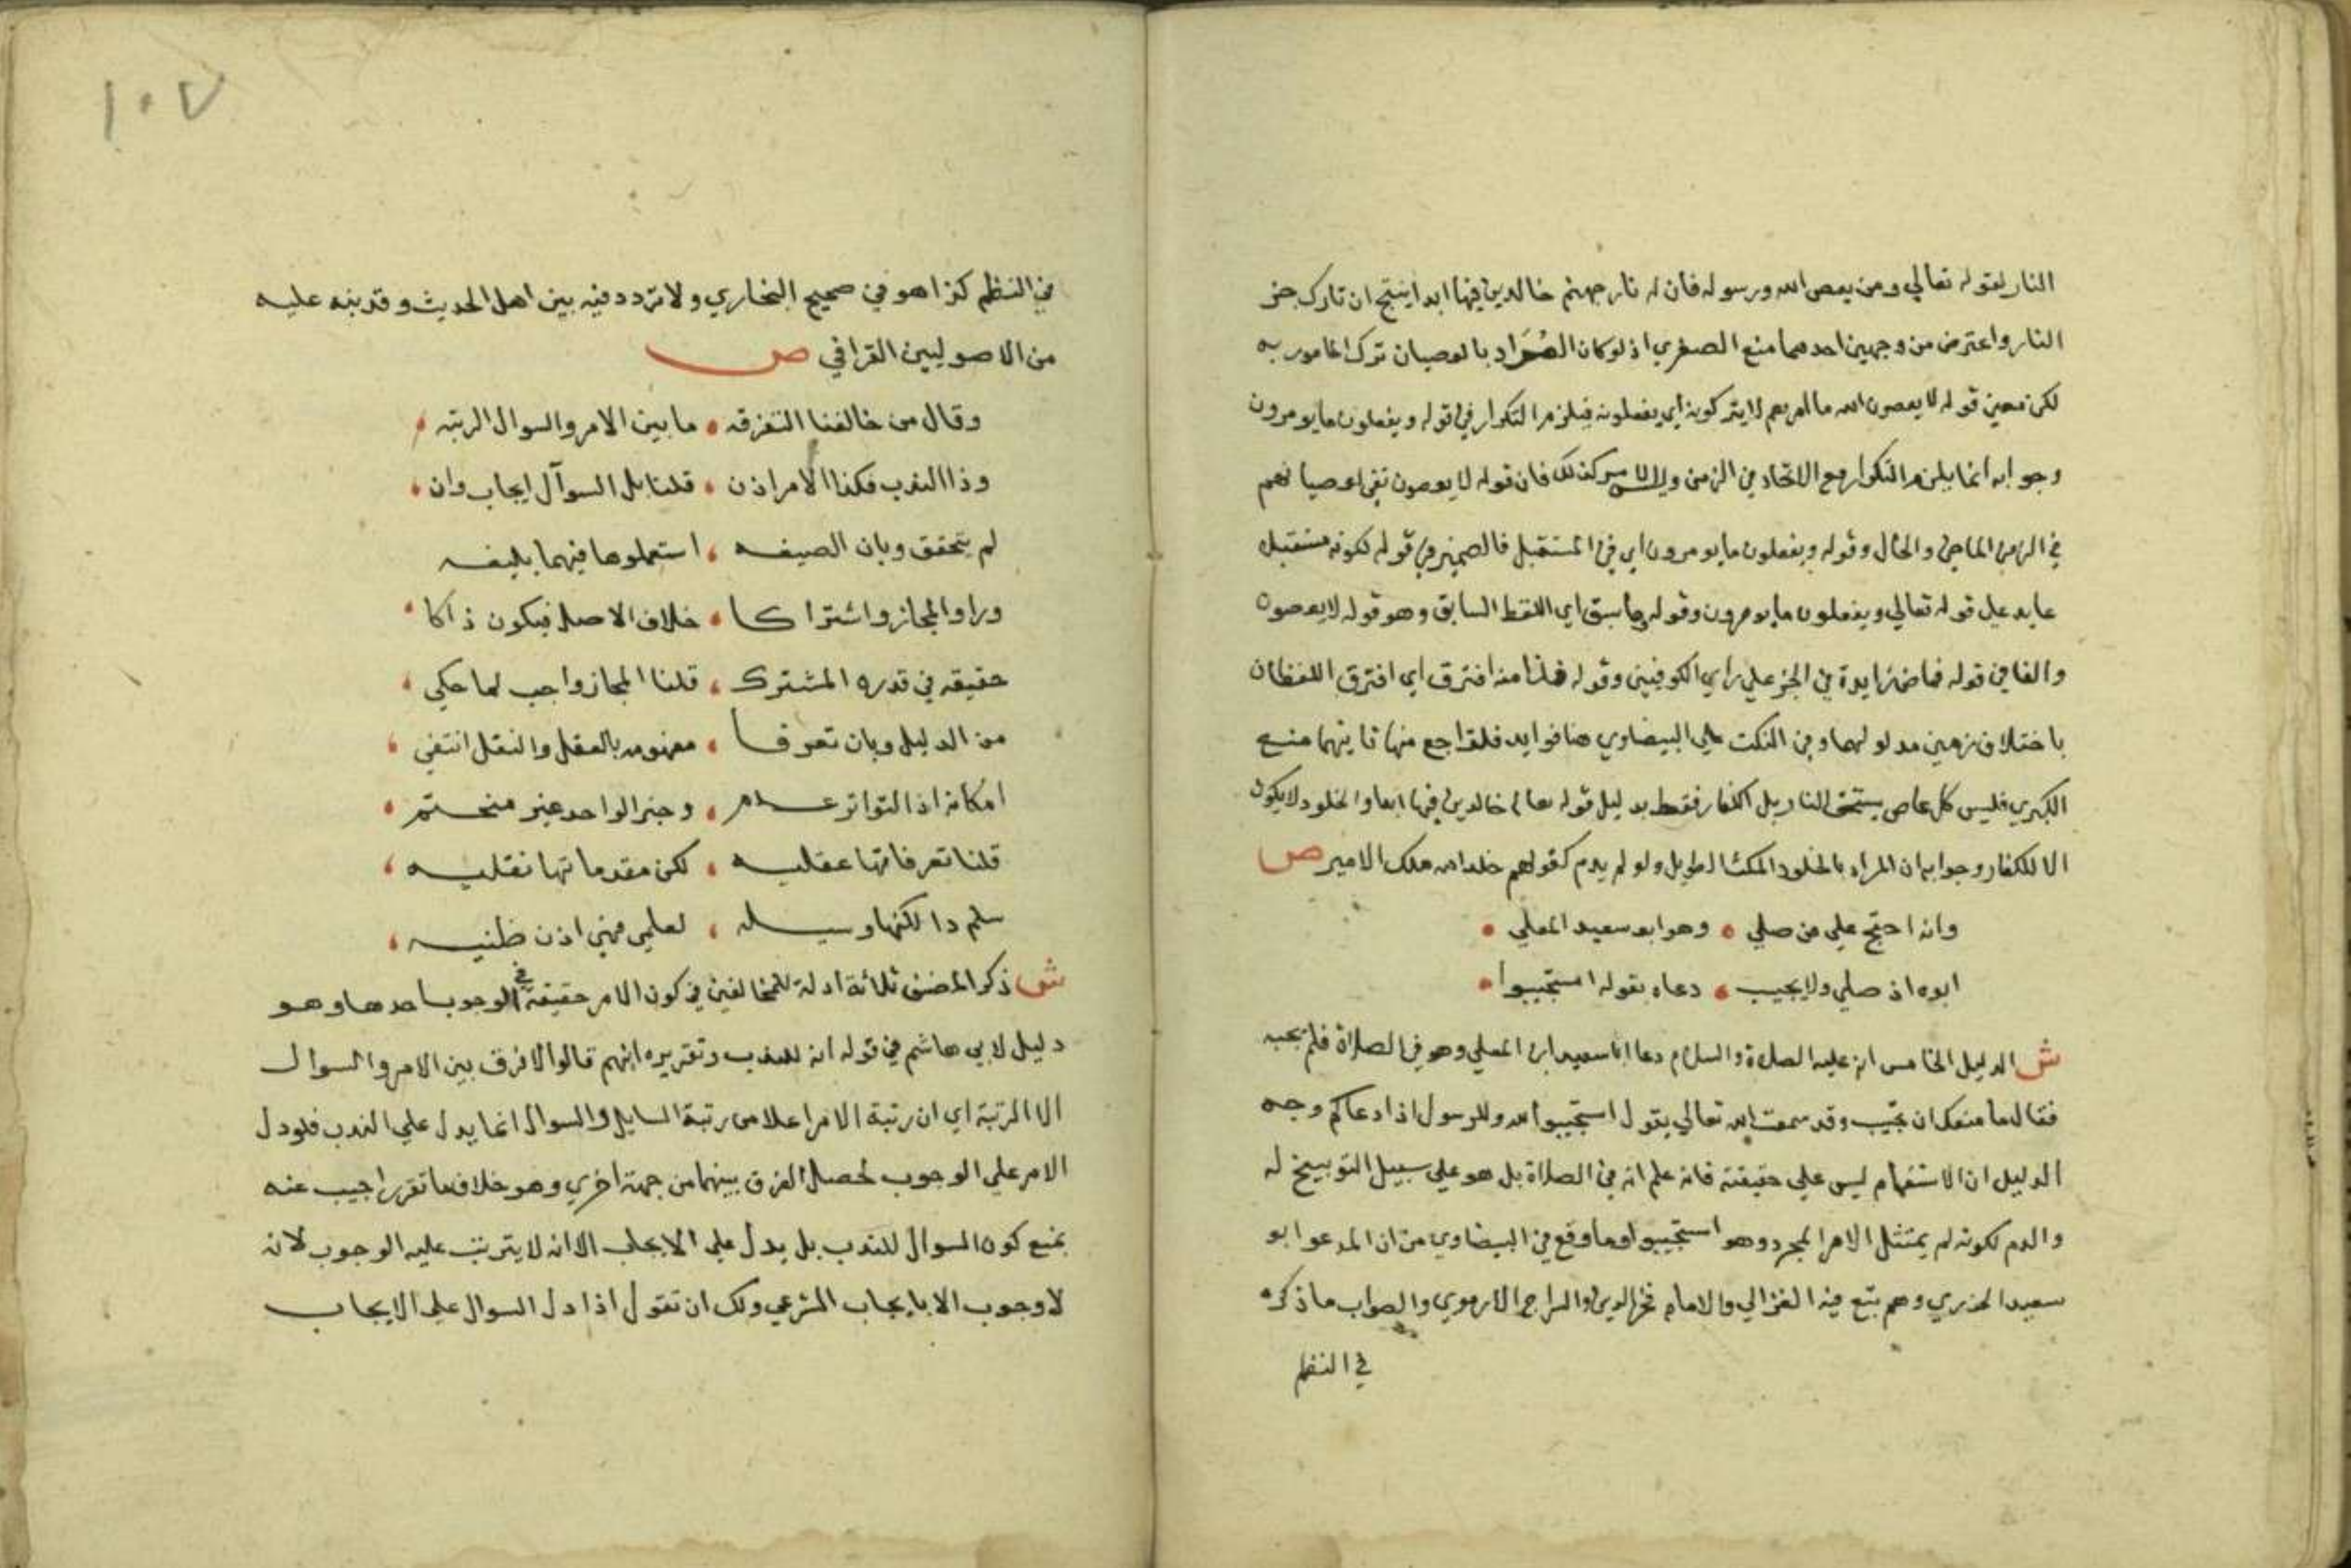 النار لقوله تعالي ومن يعص الله ورسوله فان له نار جهنم خالدين فيها ابدا ينتج ان تارك جز
النار واعترض من وجهين احدهما منع الصغري اذ لو كان المراد بالعصيان ترك المامور به
لكن معين قوله لا يعصون الله ما امرهم لا يتركونه اي يفعلونه فيلزم التكرار في قوله ويفعلون ما يومرون
وجوابه انما يلزم التكرار مع الاتحاد في الزمن وليس كذلك فان قوله لا يعصون نفي لعصيانهم
في الزمن الماضي والحال وقوله ويفعلون ما يومرون اي في المستقبل فالضمير في قوله لكونه مستقبل
عايد علي قوله تعالي ويفعلون ما يومرون وقوله وما سبق اي اللفظ السابق وهو قوله لا يعصون
والفا في قوله فماض زايدة في الخبر علي راي الكوفيين وقوله فذا منه افترق اي افترق اللفظان
باختلاف زمين مدلولهما وفي النكت علي البيضاوي هنا فوايد فلتراجع منها ثانيهما منع
الكبري فليس كل عاص يستحق النار بل الكفار فقط بدليل قوله تعالي خالدين فيها ابدا والخلود لا يكون
الا للكفار وجوابه ان المراد بالخلود المكث الطويل ولو لم يدم كقولهم خلد الله ملك الامير ص
وانه احتج علي من صلي • وهو ابو سعيد المعلي •
ابوه اذ صلي ولا يجيب • دعاه بقوله استجيبوا •
ش الدليل الخامس انه عليه الصلاة والسلام دعا ابا سعيد ابن المعلي وهو في الصلاة فلم يجبه
فقال ما منعك ان تجيب وقد سمعت الله تعالي يقول استجيبوا لله وللرسول اذا دعاكم وجه
الدليل ان الاستفهام ليس علي حقيقته فانه علم انه في الصلاة بل هو علي سبيل التوبيخ له
والذم لكونه لم يمتثل الامر المجرد وهو استجيبوا وما وقع في البيضاوي من ان المدعو ابو
سعيد الخدري وهم تبع فيه الغزالي والامام فخر الدين والسراج الارموي والصواب ما ذكره
في النظم
١٠٧
في النظم كذا هو في صحيح البخاري ولا تردد فيه بين اهل الحديث وقد نبه عليه
من الاصوليين القرافي ص
وقال من خالفنا التفرقه • ما بين الامر والسوال الرتبه
وذا الندب فكذا الامر اذن • قلنا بل السوآل ايجاب وان
لم يتحقق وبان الصيغه • استعملوها فيهما بليغه
وراوا المجاز واشتراكا • خلاف الاصل فيكون ذاكا
حقيقه في قدره المشترك • قلنا المجاز واجب لما حكي
من الدليل وبان تعرفا • مفهومه بالعقل والنقل انتفي
امكانه اذ التواتر عدم • وخبر الواحد غير منحتم
قلنا تعرفاتها عقليه • لكن مقدماتها نقليه
سلم ذا لكنها وسيله • لعلمي فهي اذن ظنيه
ش ذكر المصنف ثلاثة ادلة للمخالفين في كون الامر حقيقة في الوجوب احدها وهو
دليل لابي هاشم في قوله انه للندب وتقريره انهم قالوا لا فرق بين الامر والسوال
الا الرتبة اي ان رتبة الامر اعلا من رتبة السايل والسوال انما يدل علي الندب فلو دل
الامر علي الوجوب لحصل الفرق بينهما من جهة اخري وهو خلاف ما تقرر اجيب عنه
بمنع كون السوال للندب بل يدل علي الايجاب الا انه لا يترتب عليه الوجوب لانه
لا وجوب الا بايجاب الشرعي ولك ان تقول اذا دل السوال علي الايجاب